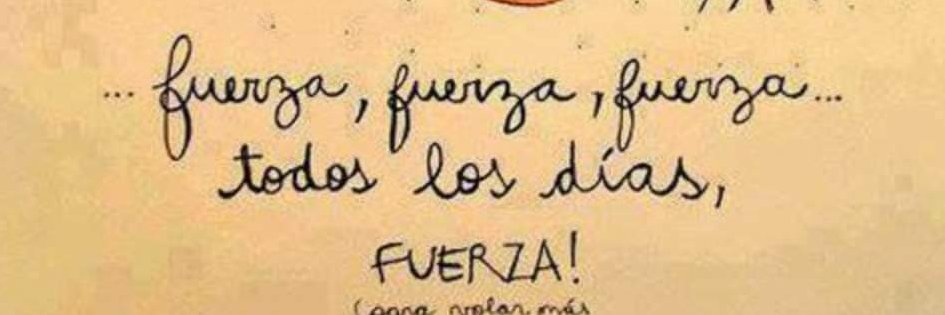 ... fuerza, fuerza, fuerza...
todos los días,
FUERZA!
(para volar más